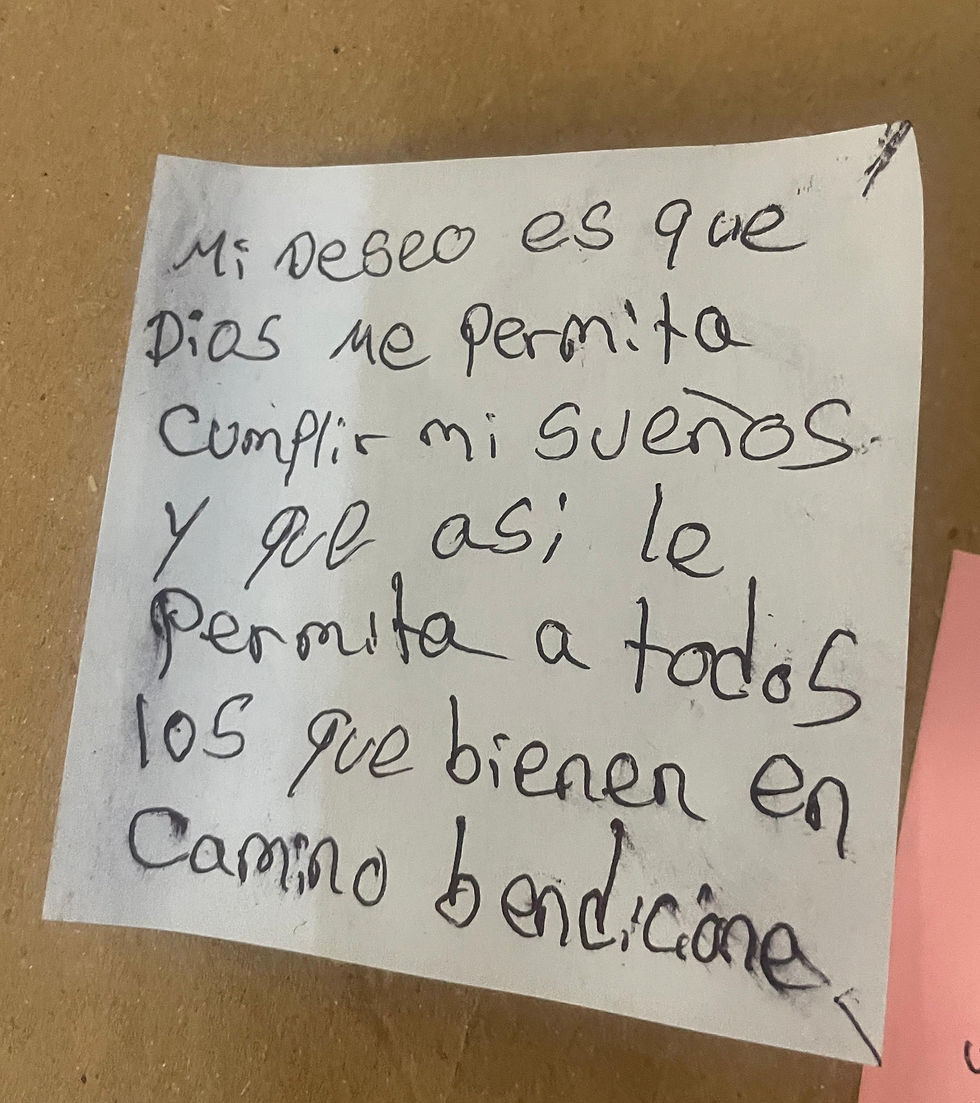 Mi Deseo es que
Dios me permita
cumplir mi sueños
y que asi le
permita a todos
los que bienen en
Camino bendicione